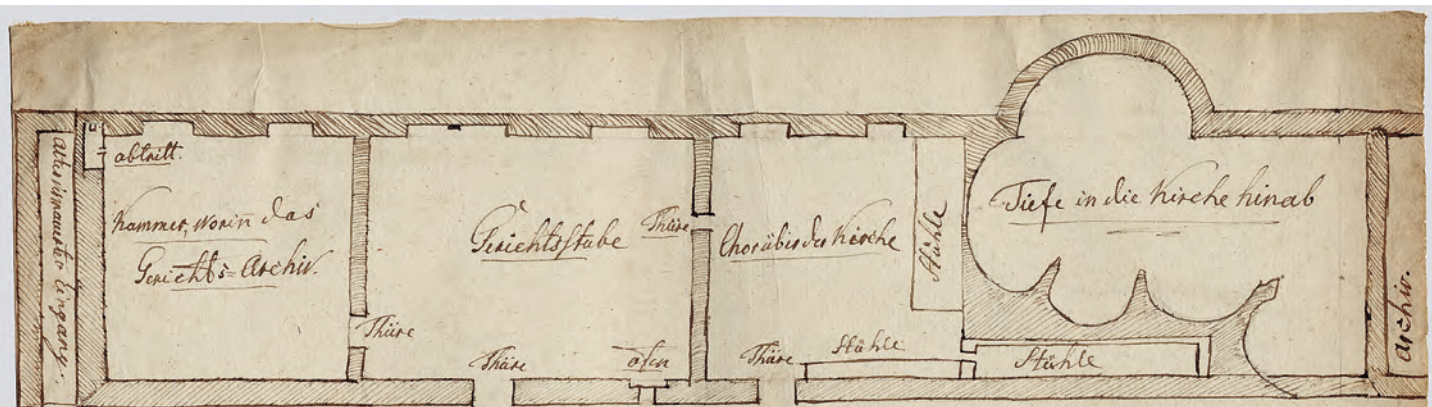 alter vermauerter Eingang.
abtritt.
Kammer, worin das
Gerichts=Archiv.
Thüre
Gerichtsstube
Thüre
Thüre
ofen
Chor über der Kirche
Thüre
Stühle
Stühle
Stühle
Tiefe in die Kirche hinab
archiv.